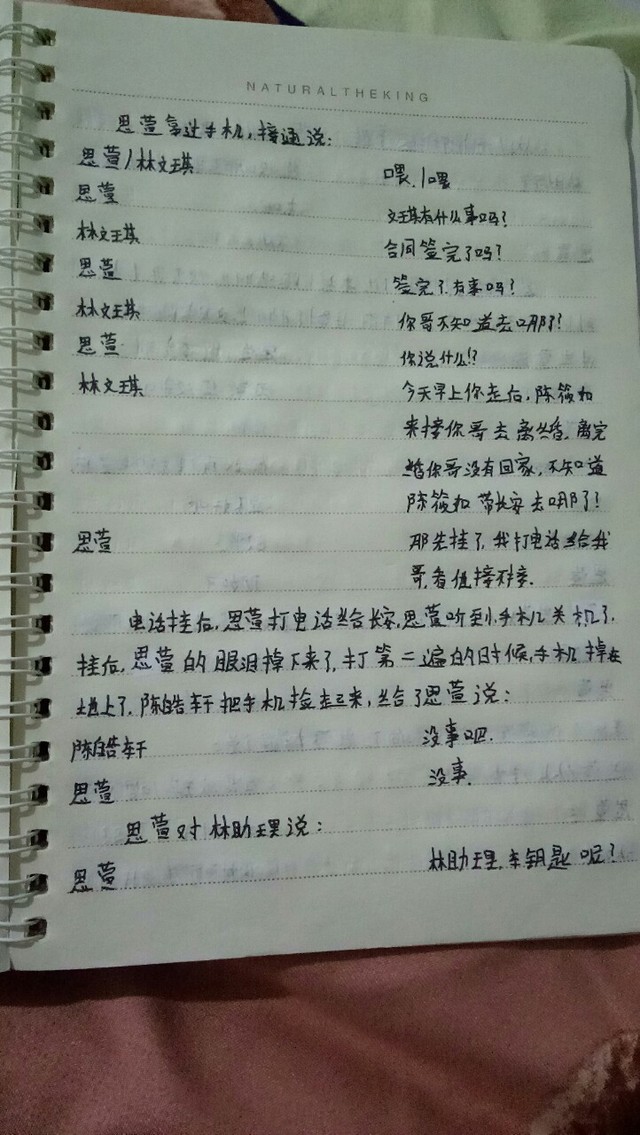 NATURALTHEKING
思萱拿过手机,接通说:
思萱/林文琪 喂./喂
思萱 文琪有什么事吗?
林文琪 合同签完了吗?
思萱 签完了.有事吗?
林文琪 你哥不知道去哪了?
思萱 你说什么!?
林文琪 今天早上你走后,陈筱和
来接你哥去离婚.离完
婚你哥没有回家,不知道
陈筱和带长安去哪了!
思萱 那先挂了,我打电话给我
哥,看他接不接.
电话挂后,思萱打电话给长安,思萱听到手机关机了.
挂后,思萱的眼泪掉下来了,打第二遍的时候,手机掉在
地上了,陈皓轩把手机捡起来,给了思萱说:
陈皓轩 没事吧.
思萱 没事.
思萱对林助理说:
思萱 林助理,车钥匙呢?